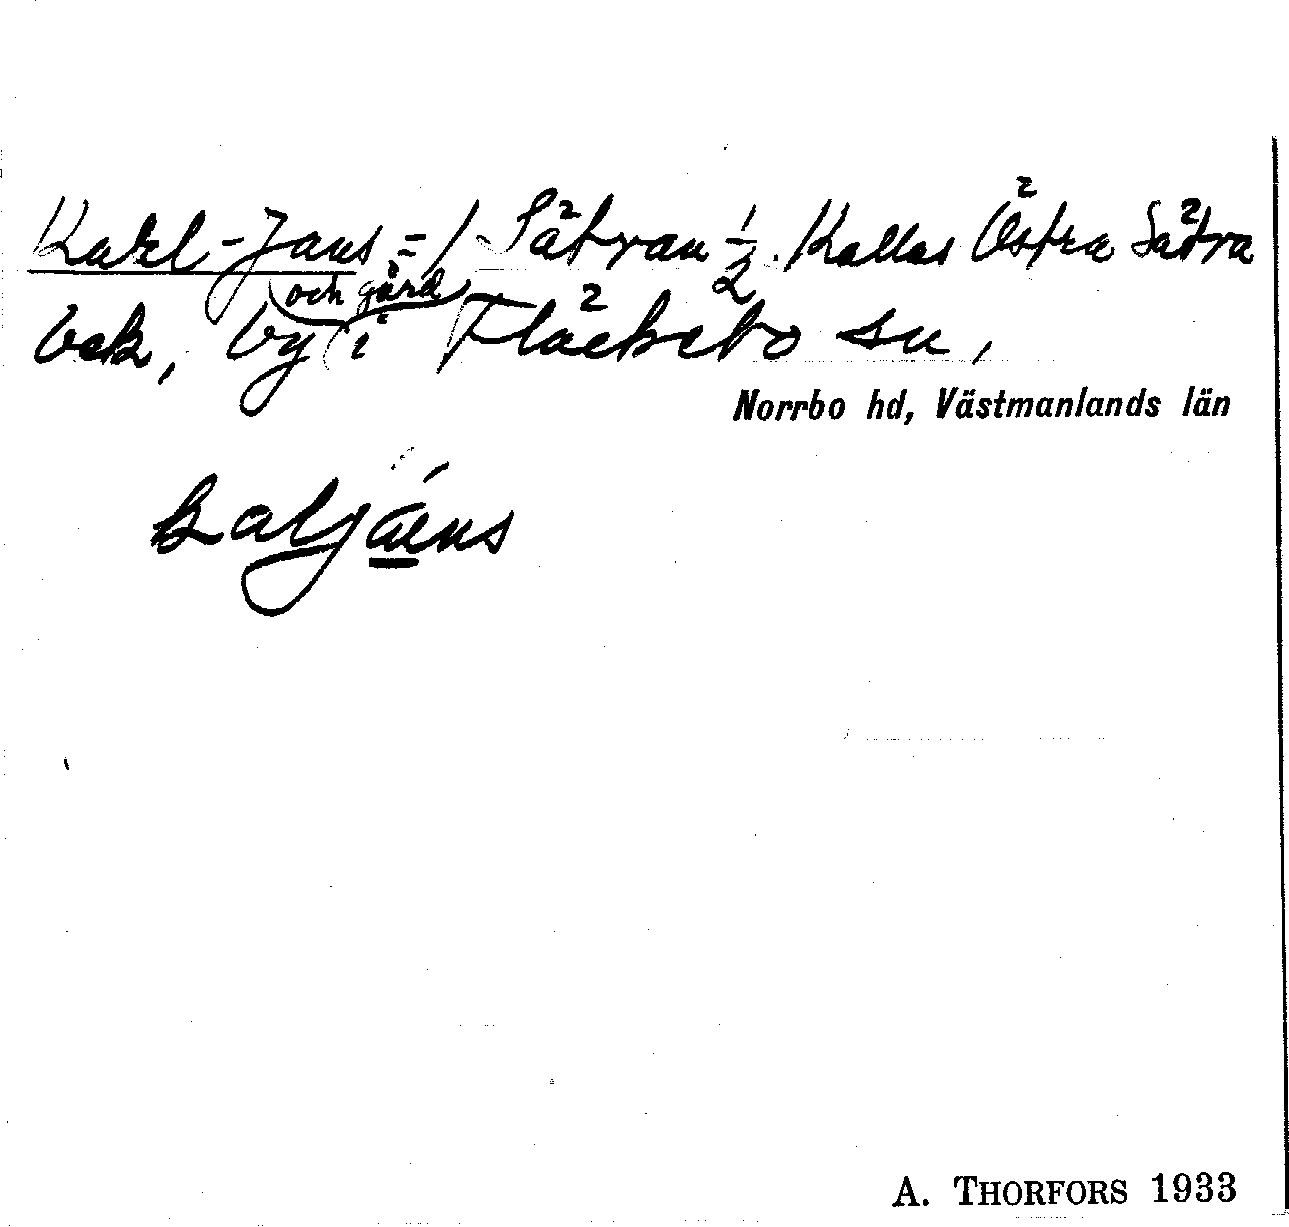 Karl-Jans = / Sätran 1/2. Kallas Östra Sätra
och gård
bek, by i Fläckebo sn,
Norrbo hd, Västmanlands län
kaljáens
A. THORFORS 1933